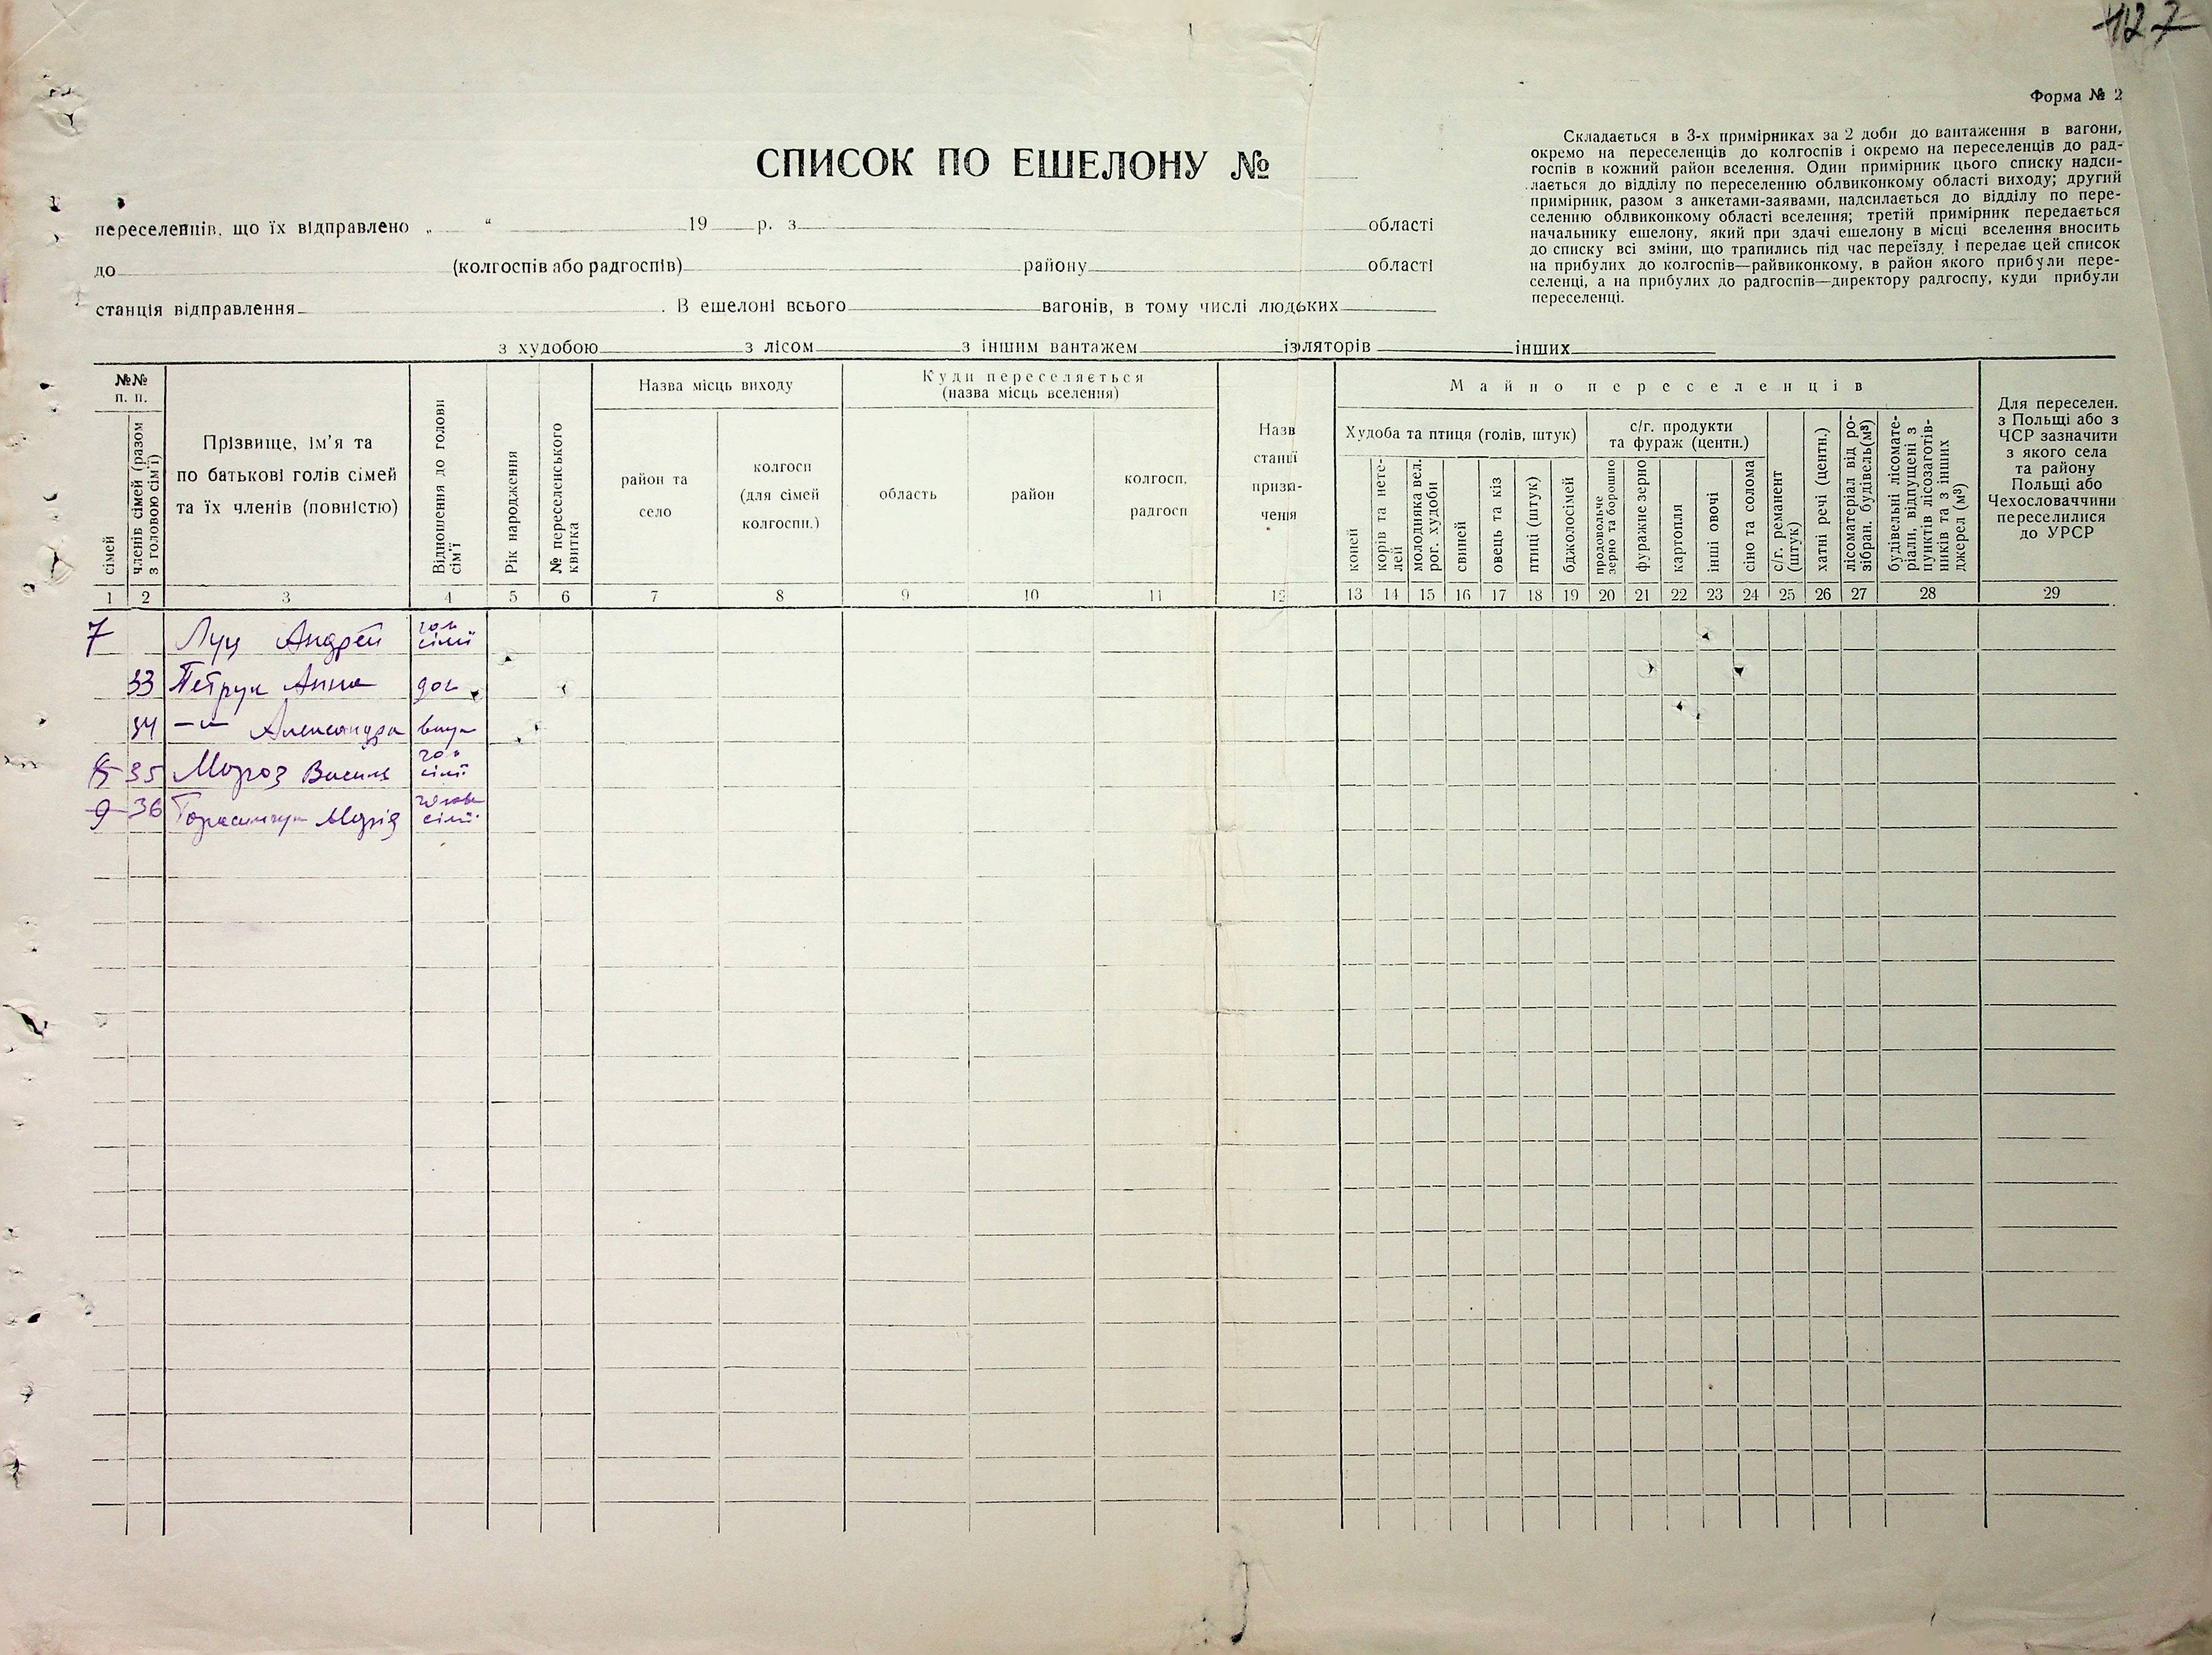 127
Форма № 2
Складається в 3-х примірниках за 2 доби до вантаження в вагони,
окремо на переселенців до колгоспів і окремо на переселенців до рад-
госпів в кожний район вселення. Один примірник цього списку надси-
лається до відділу по переселенню облвиконкому області виходу; другий
примірник, разом з анкетами-заявами, надсилається до відділу по пере-
селенню облвиконкому області вселення; третій примірник передається
начальнику ешелону, який при здачі ешелону в місці вселення вносить
до списку всі зміни, що трапились під час переїзду, і передає цей список
на прибулих до колгоспів—райвиконкому, в район якого прибули пере-
селенці, а на прибулих до радгоспів—директору радгоспу, куди прибули
переселенці.
СПИСОК ПО ЕШЕЛОНУ №
переселенців, що їх відправлено „ “ 19 р. з області
до (колгоспів або радгоспів) району області
станція відправлення . В ешелоні всього вагонів, в тому числі людських
з худобою з лісом з іншим вантажем ізоляторів інших
№№ п. п.
сімей
членів сімей (разом з головою сім'ї)
Прізвище, ім'я та
по батькові голів сімей
та їх членів (повністю)
Відношення до голови сім'ї
Рік народження
№ переселенського квитка
Назва місць виходу
район та село
колгосп (для сімей колгоспн.)
Куди переселяється
(назва місць вселення)
область
район
колгосп, радгосп
Назв станції призн- чення
Майно переселенців
Худоба та птиця (голів, штук)
коней
корів та нете- лей
молодняка вел. рог. худоби
свиней
овець та кіз
птиці (штук)
бджолосімей
с/г. продукти
та фураж (центн.)
продовольче зерно та борошно
фуражне зерно
картопля
інші овочі
сіно та солома
с/г. реманент (штук)
хатні речі (центн.)
лісоматеріал від ро- зібран. будівель(м³)
будівельні лісомате- ріали, відпущені з пунктів лісозаготів- ників та з інших джерел (м³)
Для переселен.
з Польщі або з
ЧСР зазначити
з якого села
та району
Польщі або
Чехословаччини
переселилися
до УРСР
1 2 3 4 5 6 7 8 9 10 11 12 13 14 15 16 17 18 19 20 21 22 23 24 25 26 27 28 29
7 Луц Андрей гол сімї
33 Петрук Анна доч
34 —"— Александра внук
35 Мороз Василь гол сімї
9 36 Марія голова сімї